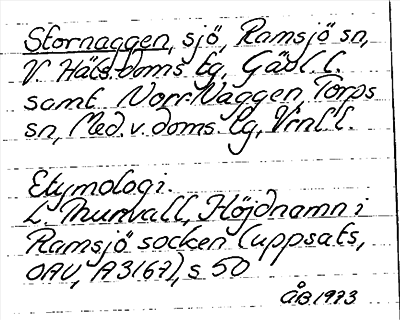 Stornaggen, sjö, Ramsjö sn,
V. Häls. doms. tg, Gävl. l.
samt Norr Naggen, Torps
sn, Med. v. doms. tg, Vnl l.
Etymologi.
L. Murvall, Höjdnamn i
Ramsjö socken (uppsats,
OAU, A3167), s 50
ÅB 1973